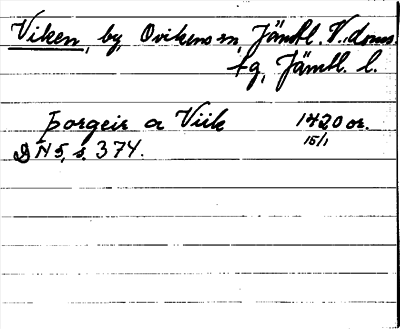 Viken, by, Ovikens sn, Jämtl. V. doms.
tg, Jämtl. l.
þorgeir a Viik 1420 or.
DN 5, s. 374. 15/1